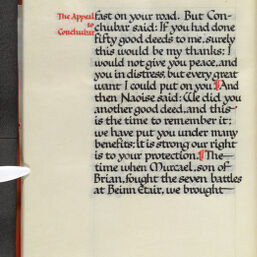 The Appeal
to
Conchubar
fast on your road. But Con-
chubar said: If you had done
fifty good deeds to me, surely
this would be my thanks: I
would not give you peace, and
you in distress, but every great
want I could put on you. ¶ And
then Naoise said: We did you
another good deed, and this
is the time to remember it:
we have put you under many
benefits: it is strong our right
is to your protection. ¶ The
time when Murcael, son of
Brian, fought the seven battles
at Beinn Etair, we brought